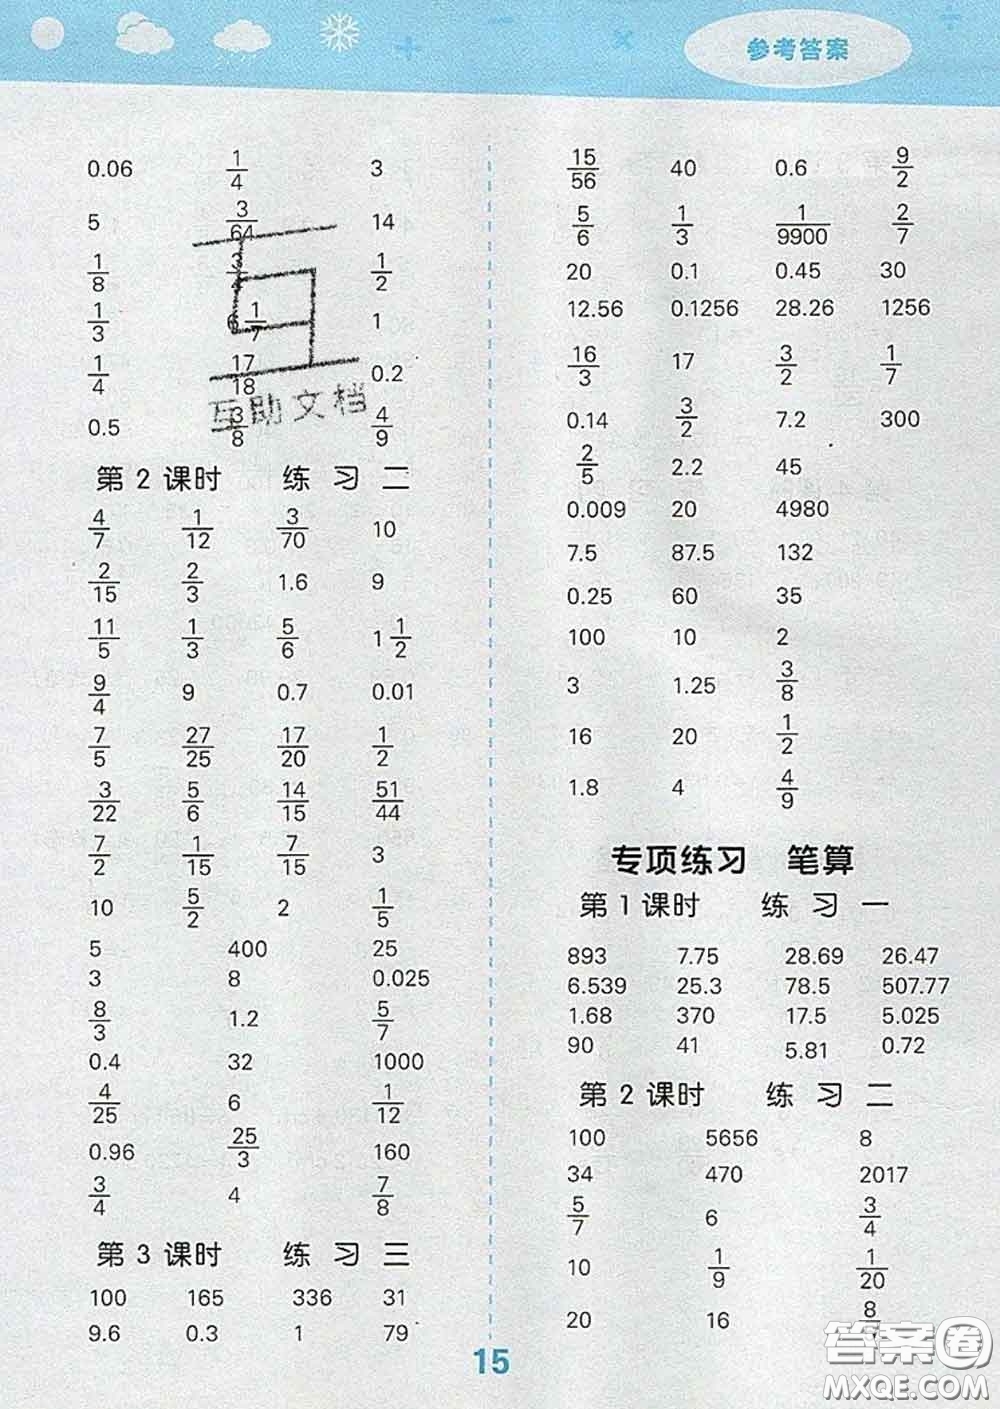 参考答案
0.06 1/4 3
5 3/64 14
1/8 1/2
1/3 6 1/7 1
1/4 17/18 0.2
0.5 3/8 4/9
互助文档
第 2 课时 练 习 二
4/7 1/12 3/70 10
2/15 2/3 1.6 9
11/5 1/3 5/6 1 1/2
9/4 9 0.7 0.01
7/5 27/25 17/20 1/2
3/22 5/6 14/15 51/44
7/2 1/15 7/15 3
10 5/2 2 1/5
5 400 25
3 8 0.025
8/3 1.2 5/7
0.4 32 1000
4/25 6 1/12
0.96 25/3 160
3/4 4 7/8
第 3 课时 练 习 三
100 165 336 31
9.6 0.3 1 79
15/56 40 0.6 9/2
5/6 1/3 1/9900 2/7
20 0.1 0.45 30
12.56 0.1256 28.26 1256
16/3 17 3/2 1/7
0.14 3/2 7.2 300
2/5 2.2 45
0.009 20 4980
7.5 87.5 132
0.25 60 35
100 10 2
3 1.25 3/8
16 20 1/2
1.8 4 4/9
专项练习 笔算
第 1 课时 练 习 一
893 7.75 28.69 26.47
6.539 25.3 78.5 507.77
1.68 370 17.5 5.025
90 41 5.81 0.72
第 2 课时 练 习 二
100 5656 8
34 470 2017
5/7 6 3/4
10 1/9 1/20
20 16
15
答案圈
MXQE.COM